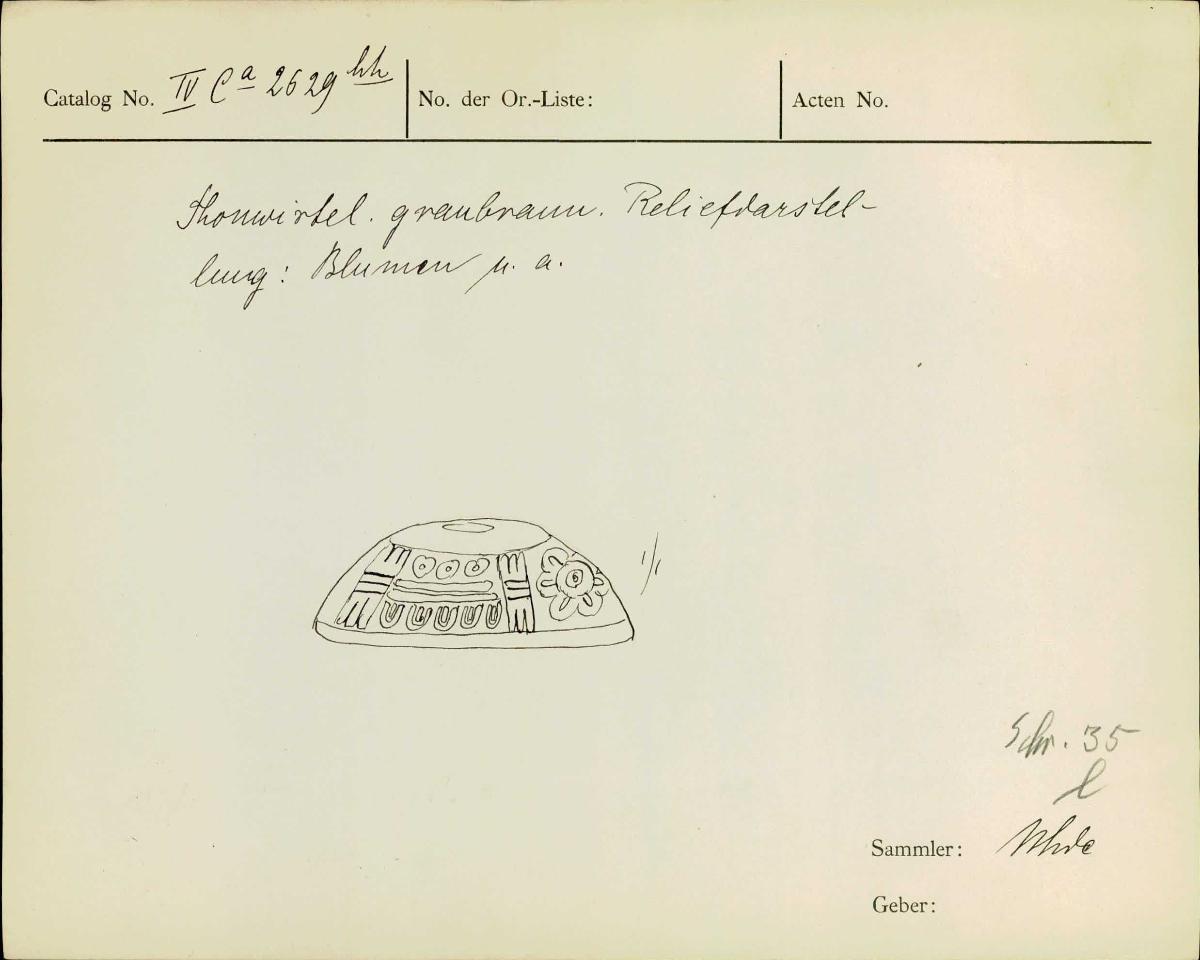 Catalog No. IV Ca 2629 hh
No. der Or.-Liste:
Acten No.
Thonwirtel. graubraun. Reliefdarstel-
lung: Blumen u. a.
1/1
Schr. 35
l
Sammler: Uhde
Geber: